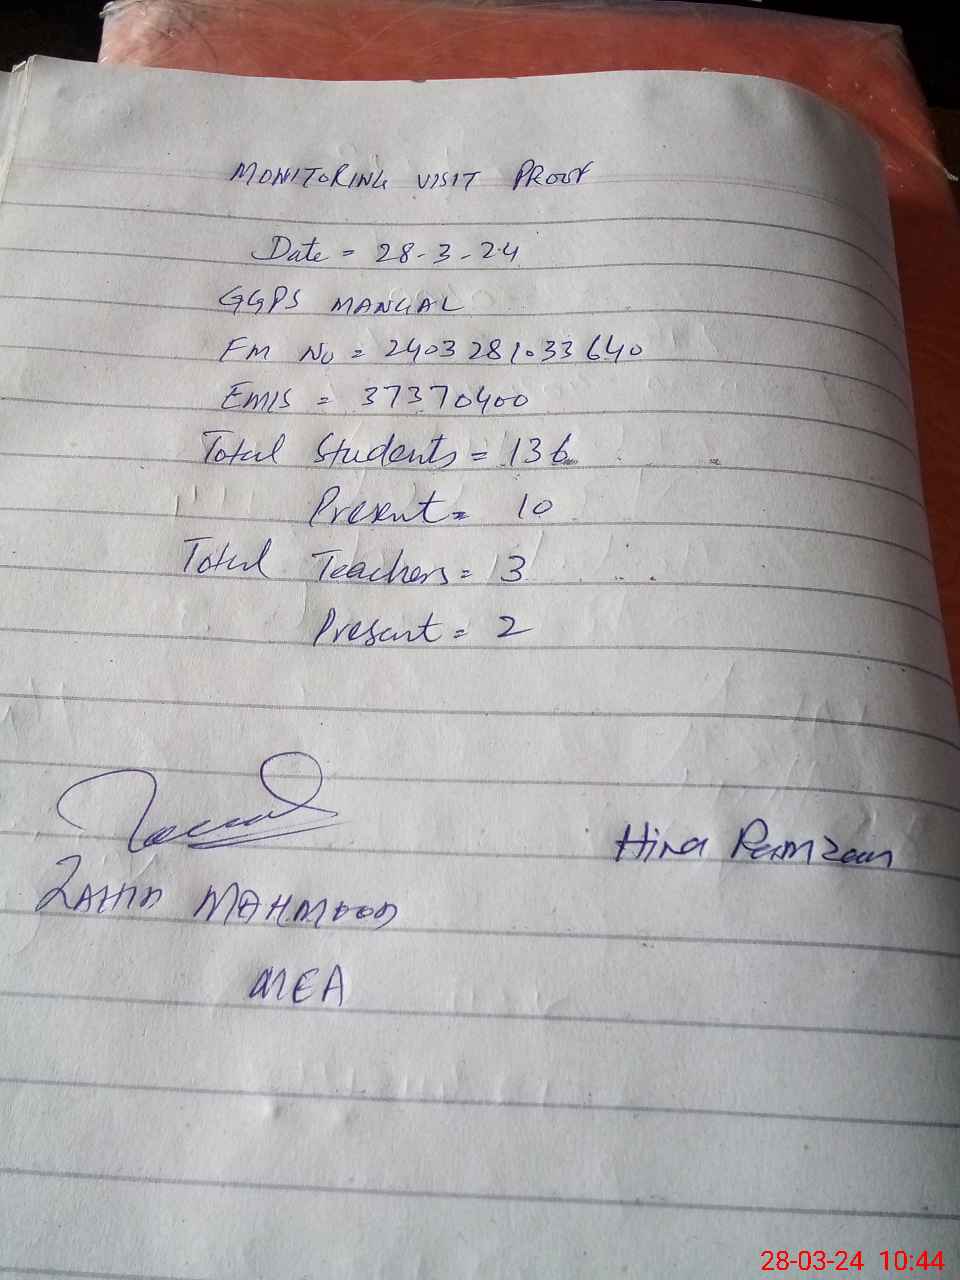 MONITORING VISIT PROOF
Date = 28-3-24
GGPS MANGAL
FM No = 2403281033640
EMIS = 37370400
Total Students = 136
Present = 10
Total Teachers = 3
Present = 2
Hina Ramzan
ZAHID MAHMOOD
MEA
28-03-24 10:44